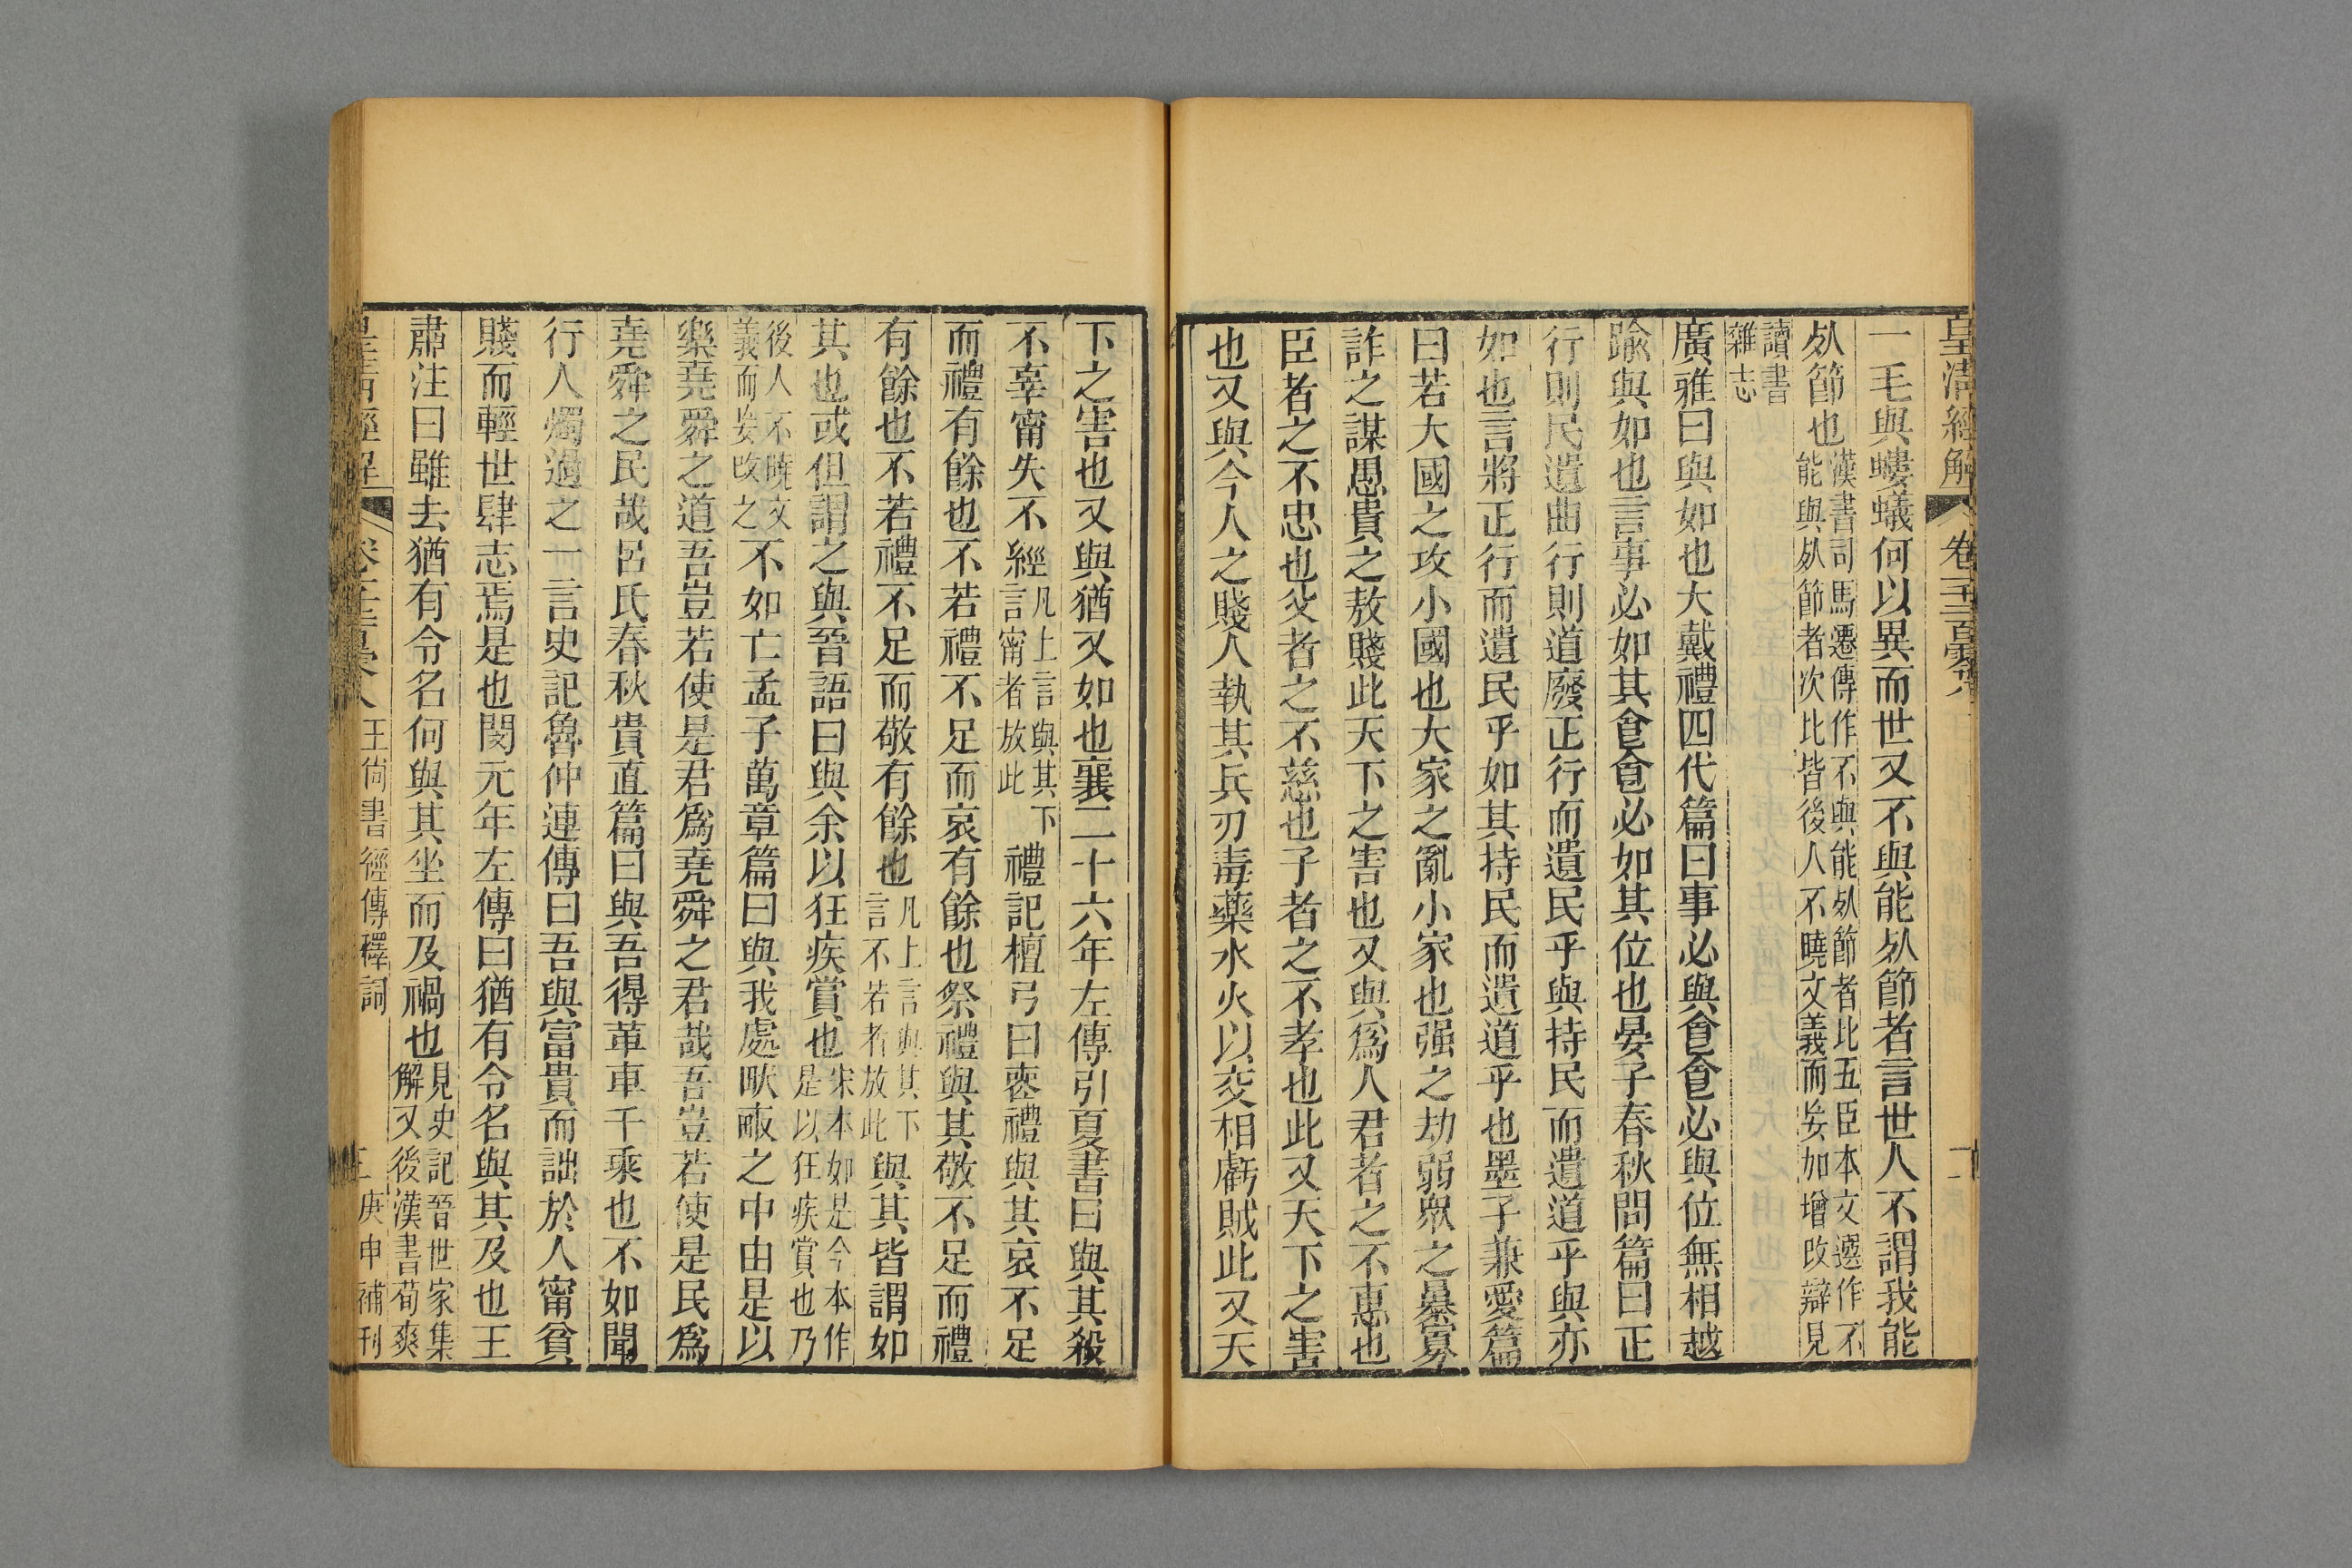 皇清經解 卷一千二百零八
一毛與螻蟻何以異而世又不與能死節者言世人不謂我能
死節也漢書司馬遷傳作不與能死節者比五臣本文選作不
能與死節者次比皆後人不曉文義而妄加增改辯見
讀書
雜志
廣雅曰與如也大戴禮四代篇曰事必與食食必與位無相越
踰與如也言事必如其食食必如其位也晏子春秋問篇曰正
行則民遺曲行則道廢正行而遺民乎與持民而遺道乎與亦
如也言將正行而遺民乎如其持民而遺道乎也墨子兼愛篇
曰若大國之攻小國也大家之亂小家也强之劫弱眾之暴寡
詐之謀愚貴之敖賤此天下之害也又與爲人君者之不惠也
臣者之不忠也父者之不慈也子者之不孝也此又天下之害
也又與今人之賤人執其兵刃毒藥水火以交相虧賊此又天
下之害也又與猶又如也襄二十六年左傳引夏書曰與其殺
不辜甯失不經凡上言與其下言甯者放此禮記檀弓曰喪禮與其哀不足
而禮有餘也不若禮不足而哀有餘也祭禮與其敬不足而禮
有餘也不若禮不足而敬有餘也凡上言與其下言不若者放此與其皆謂如
其也或但謂之與晉語曰與余以狂疾賞也宋本如是今本作是以狂疾賞也乃
後人不曉文義而妄改之不如亡孟子萬章篇曰與我處畎畝之中由是以
樂堯舜之道吾豈若使是君爲堯舜之君哉吾豈若使是民爲
堯舜之民哉呂氏春秋貴直篇曰與吾得革車千乘也不如聞
行人燭過之一言史記魯仲連傳曰吾與富貴而詘於人甯貧
賤而輕世肆志焉是也閔元年左傳曰猶有令名與其及也王
肅注曰雖去猶有令名何與其坐而及禍也見史記晉世家集解又後漢書荀爽
皇清經解 卷一千二百零八 王尙書經傳釋詞 二 庚申補刊